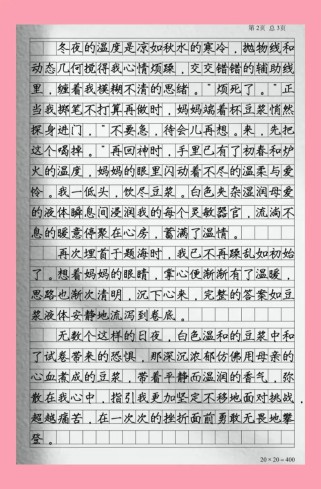 第2页 总3页
冬夜的温度是凉如秋水的寒冷，抛物线和
动态几何搅得我心情烦躁，交交错错的辅助线
里，缠着我模糊不清的思绪。“烦死了。”正
当我掷笔不打算再做时，妈妈端着杯豆浆悄然
探身进门，“不要急，待会儿再想。来，先把
这个喝掉。”再回神时，手里已有了初春和炉
火的温度，妈妈的眼里闪动着不尽的温柔与爱
怜。我一低头，饮尽豆浆。白色夹杂湿润母爱
的液体瞬息间浸润我的每个灵敏器官，流淌不
息的暖意停聚在心房，蓄满了温情。
再次埋首于题海时，我已不再躁乱如初始
了。想着妈妈的眼睛，掌心便渐渐有了温暖，
思路也渐次清明，沉下心来，完整的答案如豆
浆液体安静地流泻到卷底。
无数个这样的日夜，白色温和的豆浆中和
了试卷带来的恐惧，那深沉浓郁仿佛用母亲的
心血煮成的豆浆，带着平静而温润的香气，弥
散在我心中，指引我更加坚定不移地面对挑战，
超越痛苦，在一次次的挫折面前勇敢无畏地攀
登。
20×20=400